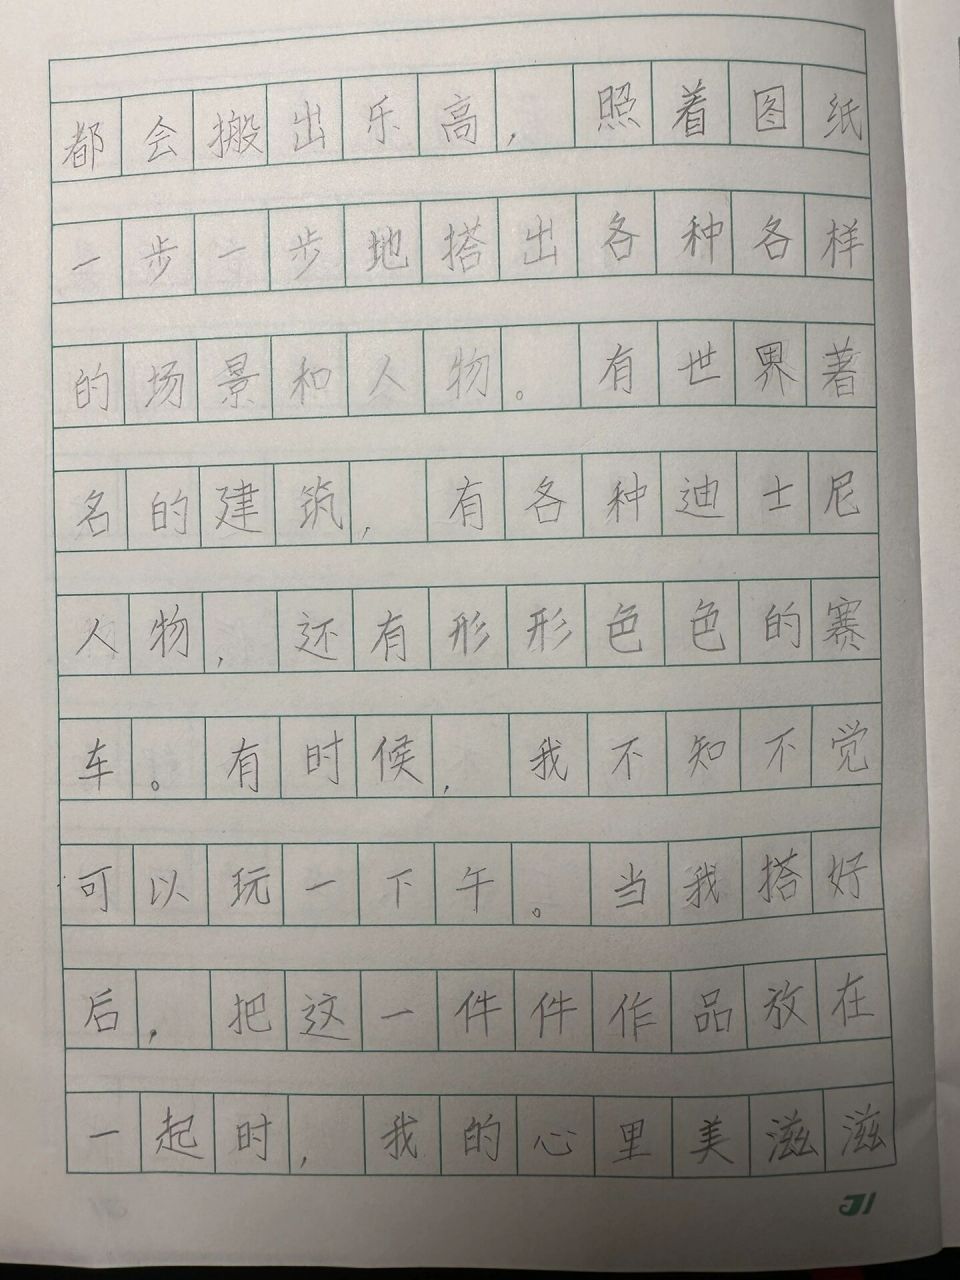 都会搬出乐高，照着图纸
一步一步地搭出各种各样
的场景和人物。有世界著
名的建筑，有各种迪士尼
人物，还有形形色色的赛
车。有时候，我不知不觉
可以玩一下午。当我搭好
后，把这一件件作品放在
一起时，我的心里美滋滋